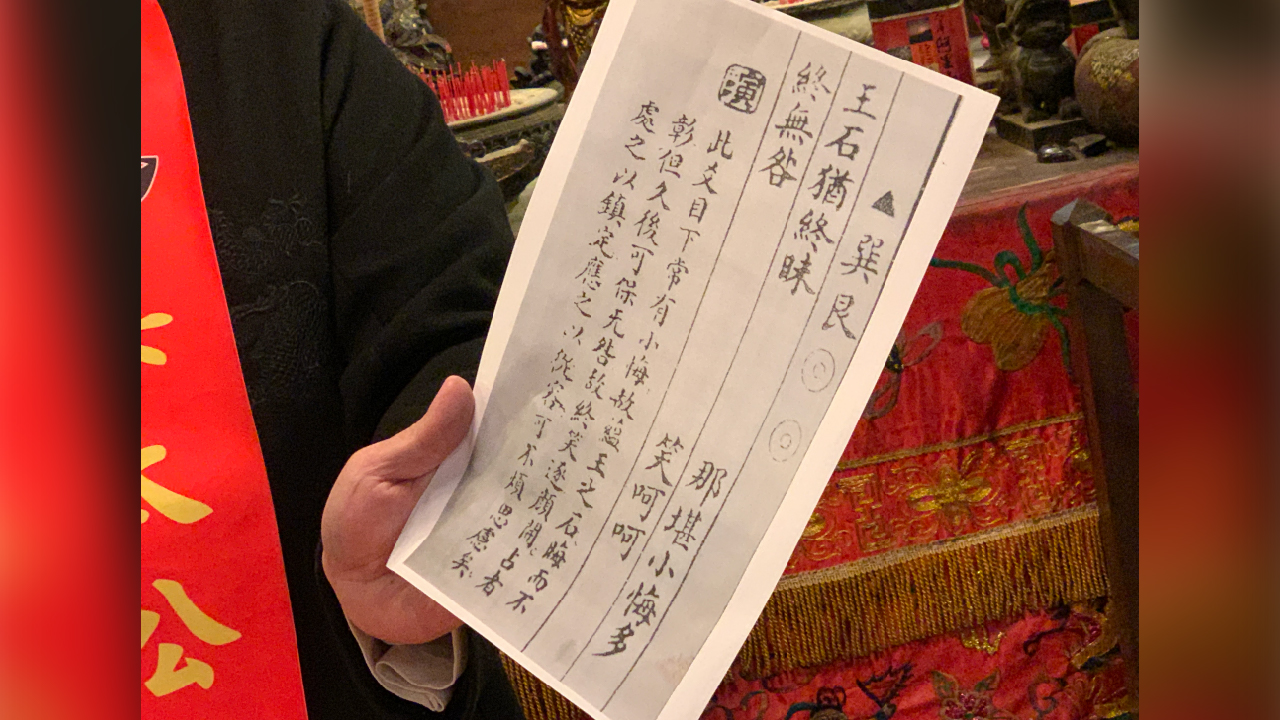 ▲ 巽艮 ◎ ◎
王石猶終昧 那堪小悔多
終無咎 笑呵呵
演 此爻目下常有小悔故王之石晦而不
彰但久後可保无咎故終笑逐顏開占者
處之以鎮定應之以從容可不煩思慮矣
太公